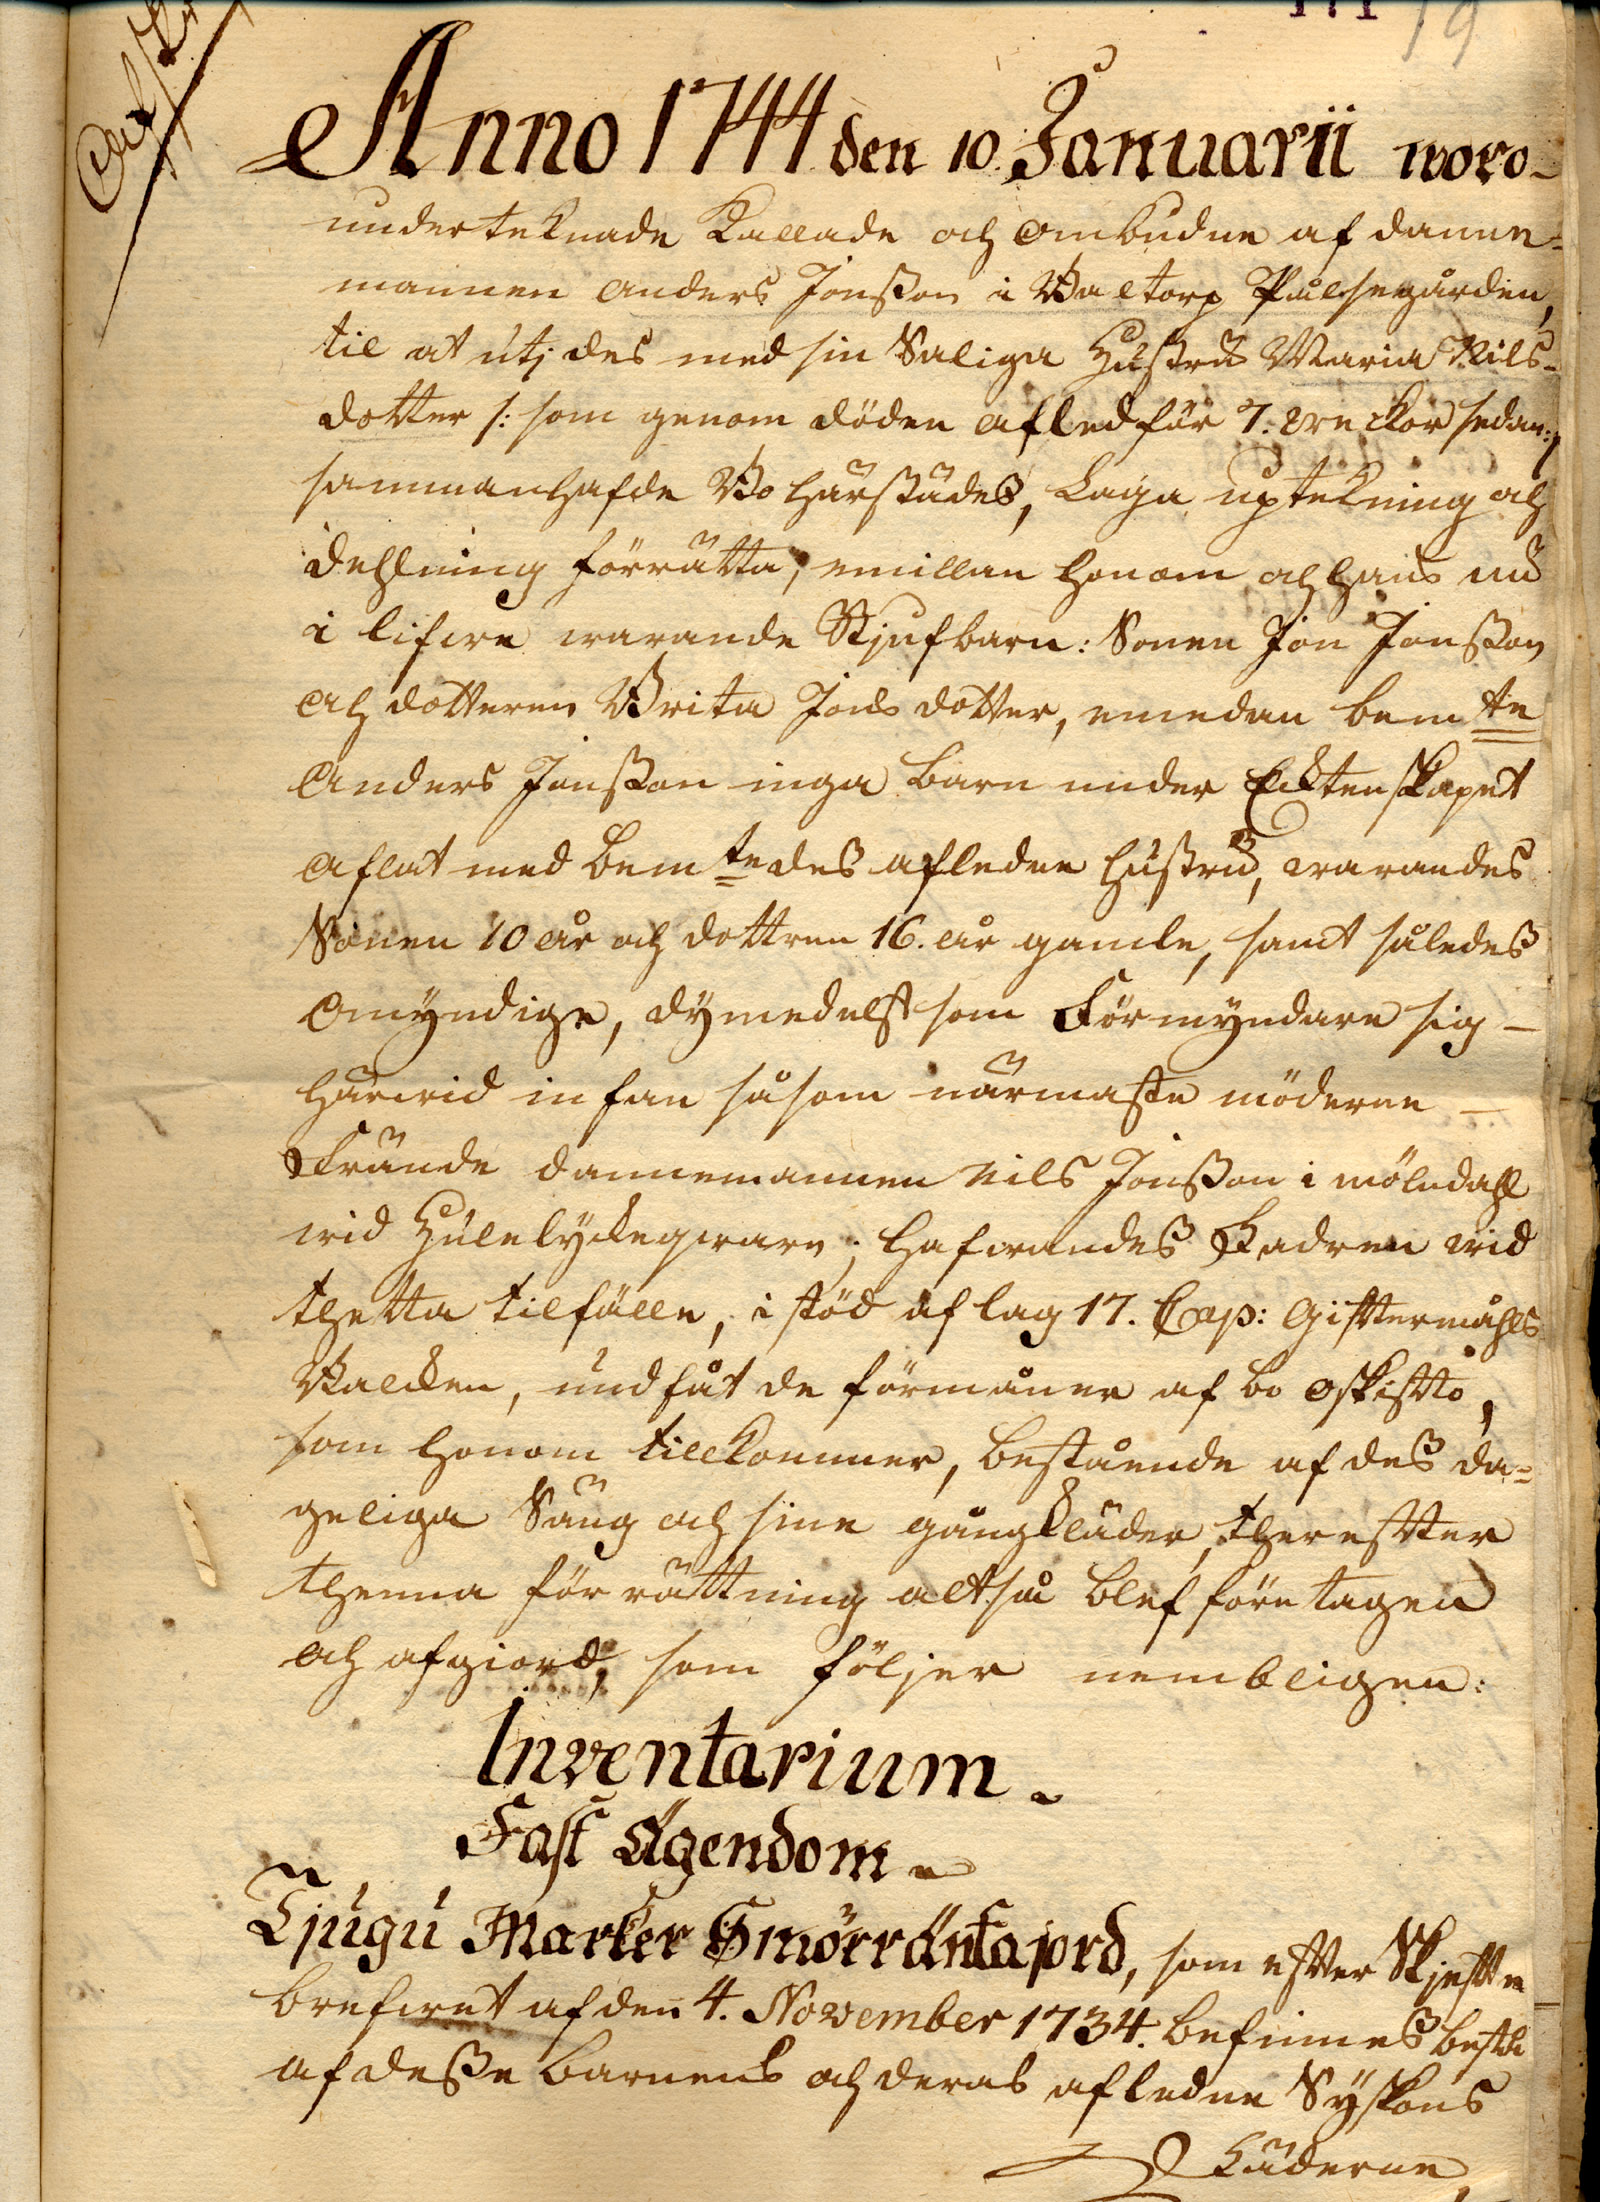 171 19
Anno 1744 den 10. Januarii woro-
underteknade Kallade och ombudne af danne-
mannen Anders Jonßon i Waltorp Pålsegården,
til at utj des med sin Saliga Hustru Maria Nils-
dotter /: som genom döden afled för 7. weckor sedan:/
sammanhafde Bo härstädes, Laga uptekning och
dehlning förrätta, emillan honom och hans nu
i lifwe warande Stjufbarn: Sonen Jon Jonßon
och dotteren Brita Jons dotter, emedan bemte
Anders Jonßon inga barn under Ecktenskapet
aflat med bemte des afledne hustru, warandes
Sonen 10 år och dottren 16. år gamle, samt således
omÿndige, dÿmedelst som Förmÿndare sig -
härwid infan såsom närmaste möderne -
Frände dannemannen Nils Jonßon i Mölndahl
wid Hulelÿckeqwarn; hafwandes Fadren wid
thetta tilfälle, i stöd af lag 17. Cap: Gifftermåhls
Balcken, undfåt de förmåner af bo oskiffto,
som honom tillkommer, bestående af des da=
geliga Säng och sine gångkläder, therefter
thenna förrättning altså blef företagen
och afgiord, som följer nembligen:
Inventarium.
Fast Ägendom.
Tjugu Marker Smörräntajord, som efter Skjffte
brefwet af den 4. November 1734. befinnes
af deße barnens och deras afledne Sÿskons
Fäderne